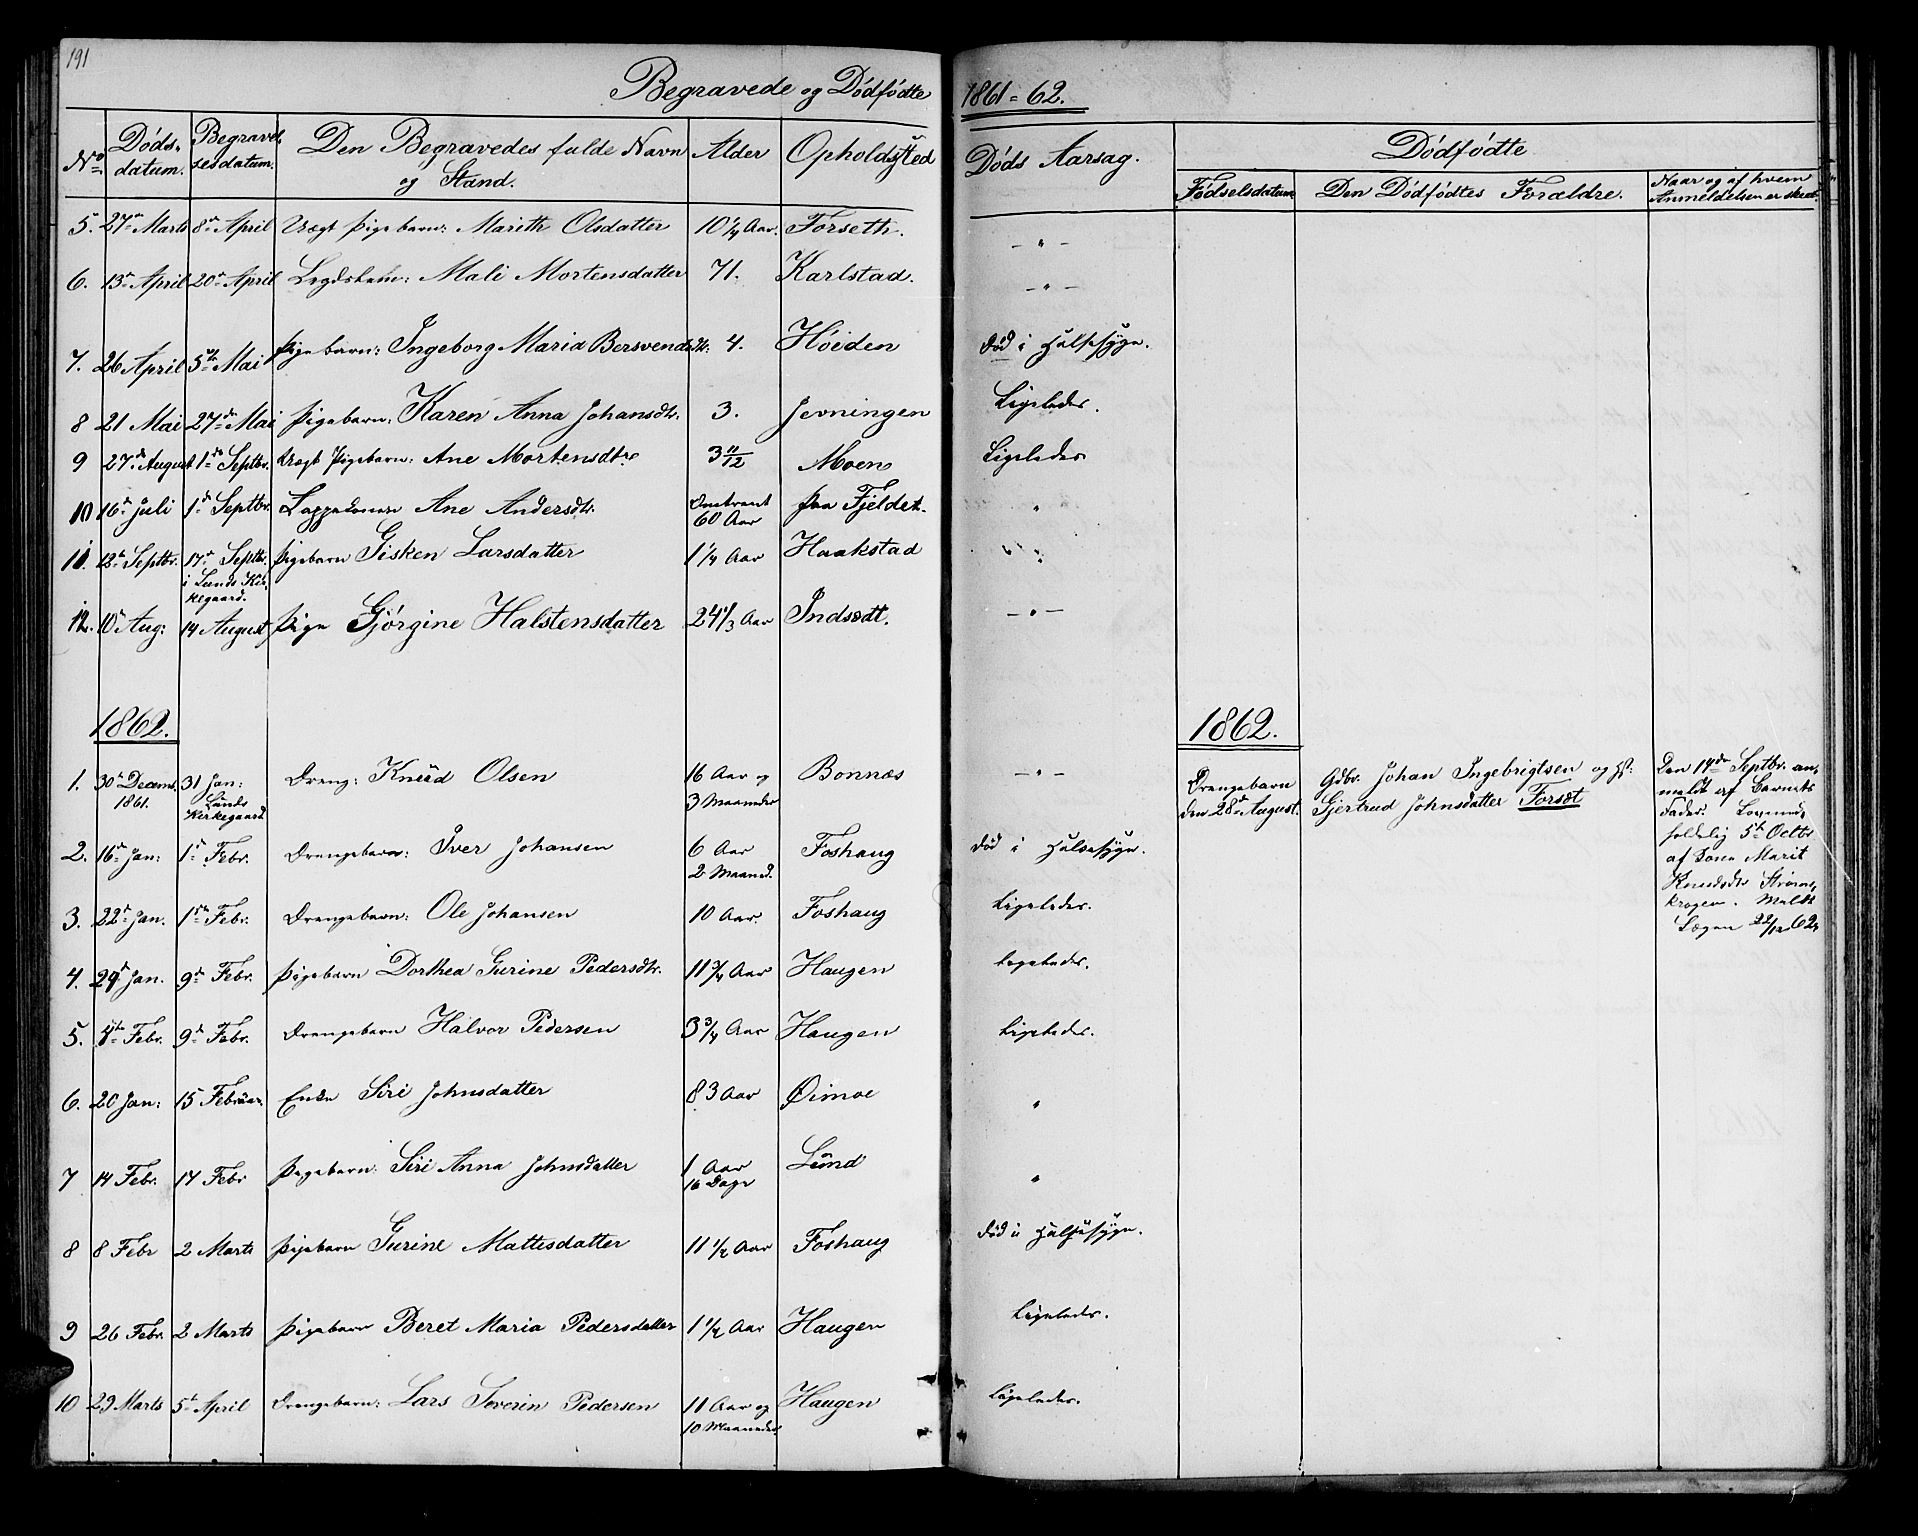 191
Begravede og Dódfódte 1861-62.
No Døds-datum. Begravel-sesdatum. Den Begravedes fulde Navn og Stand. Alder Opholdssted Døds Aarsag. Dødfødte
Fødselsdatum Den Dødfødtes Forældre. Naar og af hvem Anmeldelsen er skeet.
5. 27de Marts 8de April Lægt Pigebarn: Marith Olsdatter 10 1/4 Aar. Forseth. – " –
6. 13de April 20de April Legdslem: Mali Mortensdatter 71. Karlstad. – " –
7. 26 April 5te Mai Pigebarn: Ingeborg Maria Bersvendsdtr: 4. Høiden Død i Halsesyge.
8 21 Mai 27de Mai Pigebarn: Karen Anna Johansdtr. 3. Jevningen Ligeledes.
9 27de August 1ste Septbr. Lægt Pigebarn: Ane Mortensdtr 3 11/12 Moen Ligeledes
10 16de Juli 1ste Septbr. Lappekone Ane Andersdtr. Omtrent 60 Aar paa Fjeldet. "
11. 12te Septbr. 17de Septbr. i Lunds Kirkegaard. Pigebarn Gisken Larsdatter 1 1/4 Aar Haakstad "
12. 10de Aug: 14 August Pige Gjørgine Halstensdatter 24 1/3 Aar Indsædt. – " –
1862. 1862.
1. 30te Decembr. 1861. 31 Jan: Lunds Kirkegaard Dreng: Knud Olsen 16 Aar og 3 Maaneder Bonnæs – " –
Drengebarn den 28de August. Gdbr. Johan Ingebrigtsen og H: Gjertrud Johnsdatter Forsæt
Den 14de Septbr. an-
meldt af Barnets
Fader.
5te Octbr
af Marit
Knudsdtr Strøms-
krogen. Meldt
Lægen 22/12 62.
2. 16de Jan: 1ste Febr. Drengebarn: Iver Johansen 6 Aar 2 Maaned. Foshaug Død i Halsesyge.
3. 22de Jan. 1ste Febr. Drengebarn: Ole Johansen 10 Aar. Foshaug Ligeledes.
4. 29de Jan. 9de Febr. Pigebarn Dorthea Gurine Pedersdtr. 11 3/4 Aar Haugen Ligeledes.
5. 4de Febr. 9de Febr. Drengebarn Halvor Pedersen 3 3/4 Aar Haugen Ligeledes.
6. 20 Jan: 15 Februar. Enke Siri Johnsdatter 83 Aar Øimoe "
7 14 Febr. 17 Febr Pigebarn: Siri Anna Johnsdatter 1 Aar 16 Dage Lund "
8 8 Febr 2 Marts Pigebarn Gurine Mattisdatter 11 1/2 Aar Foshaug Død i Halsesyge.
9 26 Febr. 2 Marts Pigebarn Beret Maria Pedersdatter 1 1/2 Aar Haugen Ligeledes.
10 29 Marts 5te April Drengebarn: Lars Severin Pedersen 11 Aar og 10 Maaneder. Haugen Ligeledes.